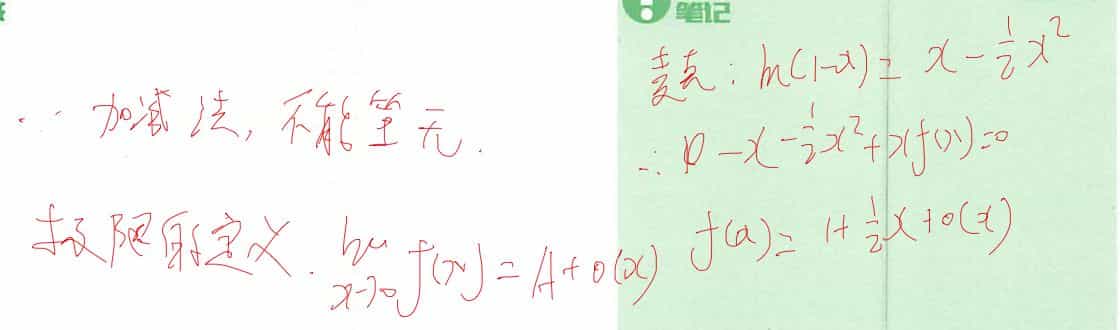 笔记
∵ 加减法, 不能等无.
极限的定义. lim x→0 f(x) = A + o(x)
麦克: ln(1-x) = x - 1/2 x²
∴ 0 - x - 1/2 x² + x f(x) = 0
f(x) = 1 + 1/2 x + o(x)